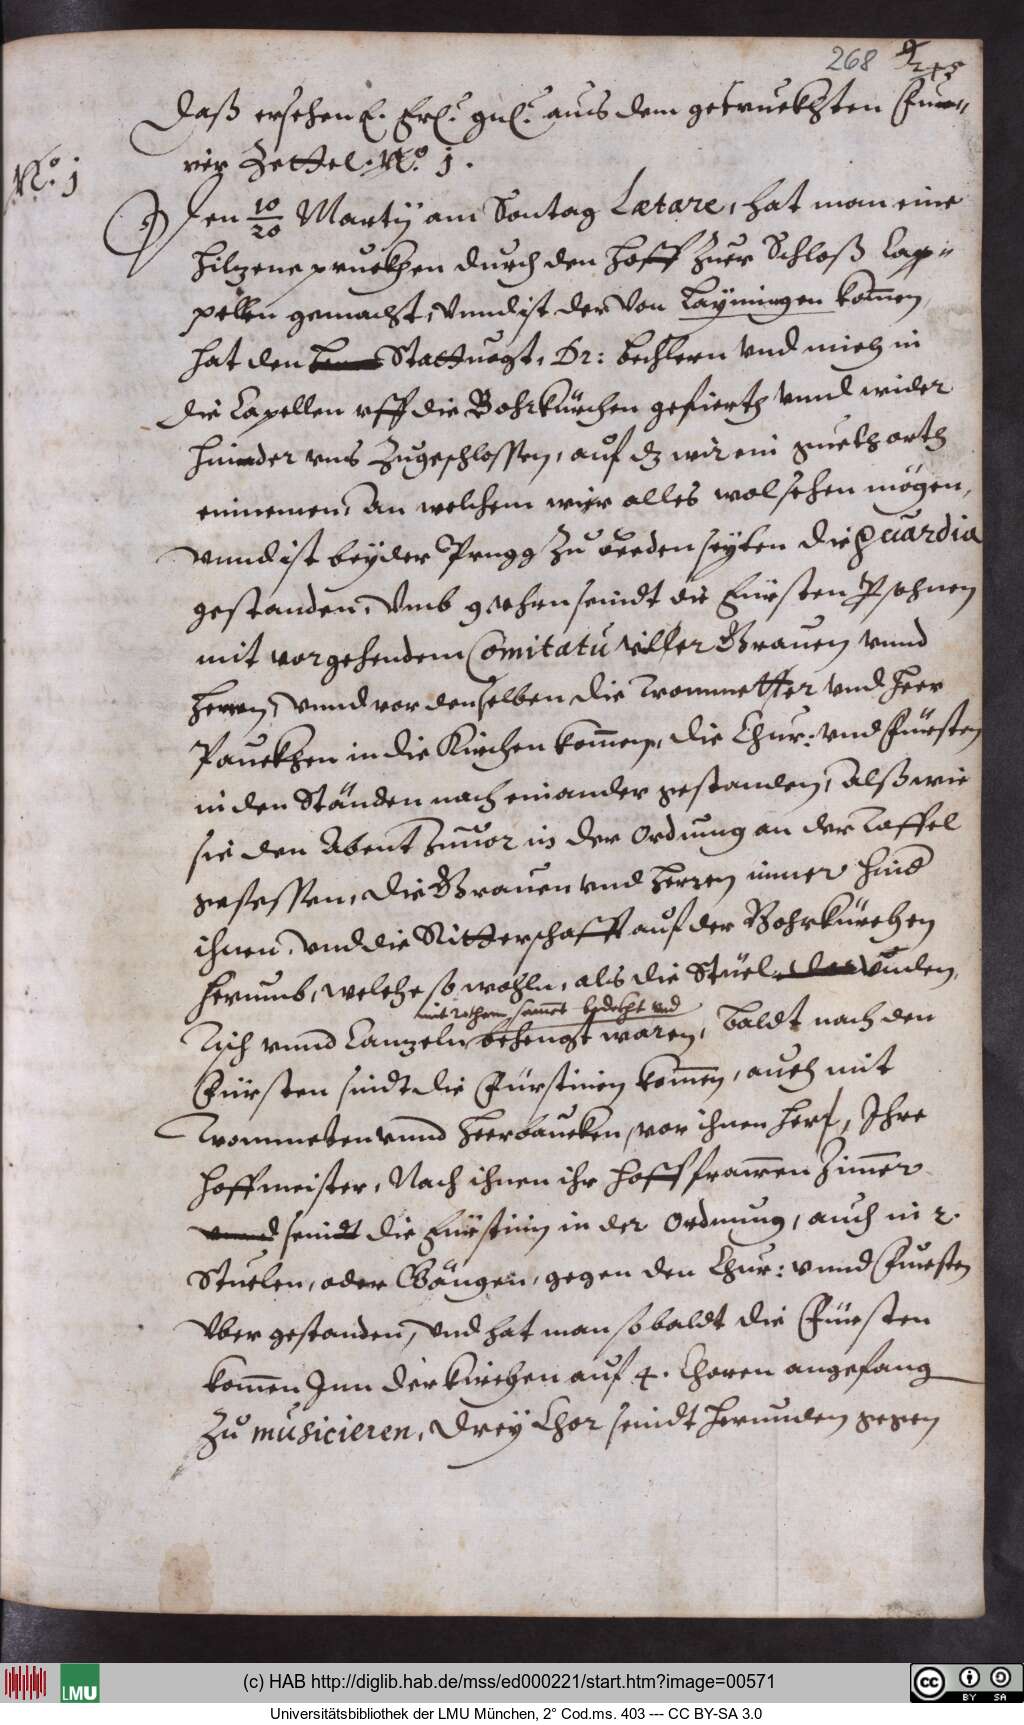 268
Daß ersehen E. Erl. gnl. aus dem getruekhten Furr=
rier Zettel. No. j.
No. j
Den 10/20 Martij am Sontag Lætare, hat man eine
hilzene pruekhen durch den Hoff Zuer Schloß Cap=
pellen gemacht, Vnnd ist der Von Layningen kommen,
hat den Stattuogt, Dr: bechlern Vnd mich in
die Capellen vff die Bohrkürchen gefierth Vnnd wider
hinder vns Zugeschlossen, auf dz wir ein gueth orth
einnemen, An welchem wier alles wol sehen mögen,
Vnnd ist beÿ der Prugg Zu beeden seÿten die guardia
gestanden, Vmb 9 Vhrn seindt die Fürsten Psohnen
mit vorgehendem Comitatu viller Grauen vnnd
Herren, Vnnd vor denselben die Trommetter Vnd Heer
Pauckhen in die Kirchen kommen, die Chur: Vnd Fürsten
in den Ständen nach einander gestanden, Alß wie
sie den Abent Zuuor in der Ordnung an der Taffel
gesessen, die Grauen Vnd Herren immer hind
ihnen, Vnd die Ritterschafft auf der Bohrkürchen
herumb, welche so wohln, als die Stüel Vnden,
mit rothem sammet bedekht Vnd
Tisch vnnd Canzeln behengt waren, baldt nach den
Fürsten sindt die Fürstinen kommen, auch mit
Trommeten vnnd Heerbaucken, vor ihnen her, Ihre
Hoffmeister, Nach ihnen ihr Hoff frawen Zimmer
seindt die Fürstinen in der Ordnung, auch in 2.
Stuelen, oder Gängen, gegen den Chur: vnnd Fürsten
Vber gestanden, Vnd hat man so baldt die Fürsten
kommen Inn der kirchen auf 4. Choren angefang
Zu musicieren, dreÿ Chor seindt herunden gegen
(c) HAB http://diglib.hab.de/mss/ed000221/start.htm?image=00571
LMU
CC BY SA
Universitätsbibliothek der LMU München, 2° Cod.ms. 403 --- CC BY-SA 3.0